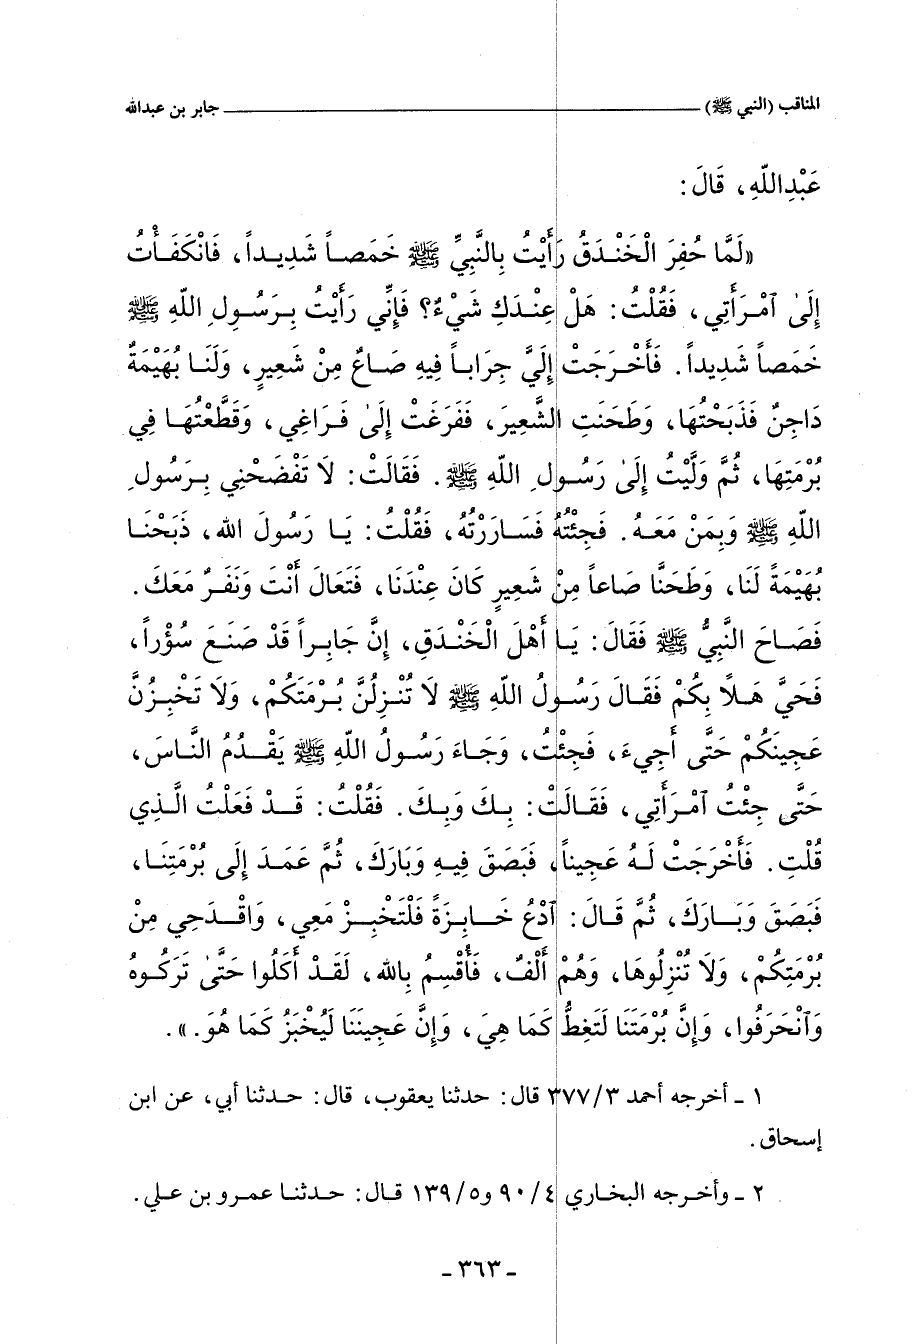 المناقب (النبي ﷺ) ــــــــ جابر بن عبدالله
عَبْدِاللّٰهِ، قَالَ:
«لَمَّا حُفِرَ الْخَنْدَقُ رَأَيْتُ بِالنَّبِيِّ ﷺ خَمَصاً شَدِيداً، فَانْكَفَأْتُ
إِلَىٰ ٱمْرَأَتِي، فَقُلْتُ: هَلْ عِنْدَكِ شَيْءٌ؟ فَإِنِّي رَأَيْتُ بِرَسُولِ اللّٰهِ ﷺ
خَمَصاً شَدِيداً. فَأَخْرَجَتْ إِلَيَّ جِرَاباً فِيهِ صَاعٌ مِنْ شَعِيرٍ، وَلَنَا بُهَيْمَةٌ
دَاجِنٌ فَذَبَحْتُهَا، وَطَحَنَتِ الشَّعِيرَ، فَفَرَغَتْ إِلَىٰ فَرَاغِي، وَقَطَّعْتُهَا فِي
بُرْمَتِهَا، ثُمَّ وَلَّيْتُ إِلَىٰ رَسُولِ اللّٰهِ ﷺ. فَقَالَتْ: لَا تَفْضَحْنِي بِرَسُولِ
اللّٰهِ ﷺ وَبِمَنْ مَعَهُ. فَجِئْتُهُ فَسَارَرْتُهُ، فَقُلْتُ: يَا رَسُولَ الله، ذَبَحْنَا
بُهَيْمَةً لَنَا، وَطَحَنَّا صَاعاً مِنْ شَعِيرٍ كَانَ عِنْدَنَا، فَتَعَالَ أَنْتَ وَنَفَرٌ مَعَكَ.
فَصَاحَ النَّبِيُّ ﷺ فَقَالَ: يَا أَهْلَ الْخَنْدَقِ، إِنَّ جَابِراً قَدْ صَنَعَ سُؤْراً،
فَحَيَّ هَلاً بِكُمْ فَقَالَ رَسُولُ اللّٰهِ ﷺ لَا تُنْزِلُنَّ بُرْمَتَكُمْ، وَلَا تَخْبِزُنَّ
عَجِينَكُمْ حَتَّى أَجِيءَ، فَجِئْتُ، وَجَاءَ رَسُولُ اللّٰهِ ﷺ يَقْدُمُ النَّاسَ،
حَتَّى جِئْتُ ٱمْرَأَتِي، فَقَالَتْ: بِكَ وَبِكَ. فَقُلْتُ: قَدْ فَعَلْتُ الَّذِي
قُلْتِ. فَأَخْرَجَتْ لَهُ عَجِيناً، فَبَصَقَ فِيهِ وَبَارَكَ، ثُمَّ عَمَدَ إِلَى بُرْمَتِنَا،
فَبَصَقَ وَبَارَكَ، ثُمَّ قَالَ: ٱدْعُ خَابِزَةً فَلْتَخْبِزْ مَعِي، وَاقْدَحِي مِنْ
بُرْمَتِكُمْ، وَلَا تُنْزِلُوهَا، وَهُمْ أَلْفٌ، فَأُقْسِمُ بِالله، لَقَدْ أَكَلُوا حَتَّىٰ تَرَكُوهُ
وَٱنْحَرَفُوا، وَإِنَّ بُرْمَتَنَا لَتَغِطُّ كَمَا هِيَ، وَإِنَّ عَجِينَنَا لَيُخْبَزُ كَمَا هُوَ.».
١ ـ أخرجه أحمد ٣٧٧/٣ قال: حدثنا يعقوب، قال: حدثنا أبي، عن ابن
إسحاق.
٢ ـ وأخرجه البخاري ٩٠/٤ و١٣٩/٥ قال: حدثنا عمرو بن علي.
ـ ٣٦٣ ـ